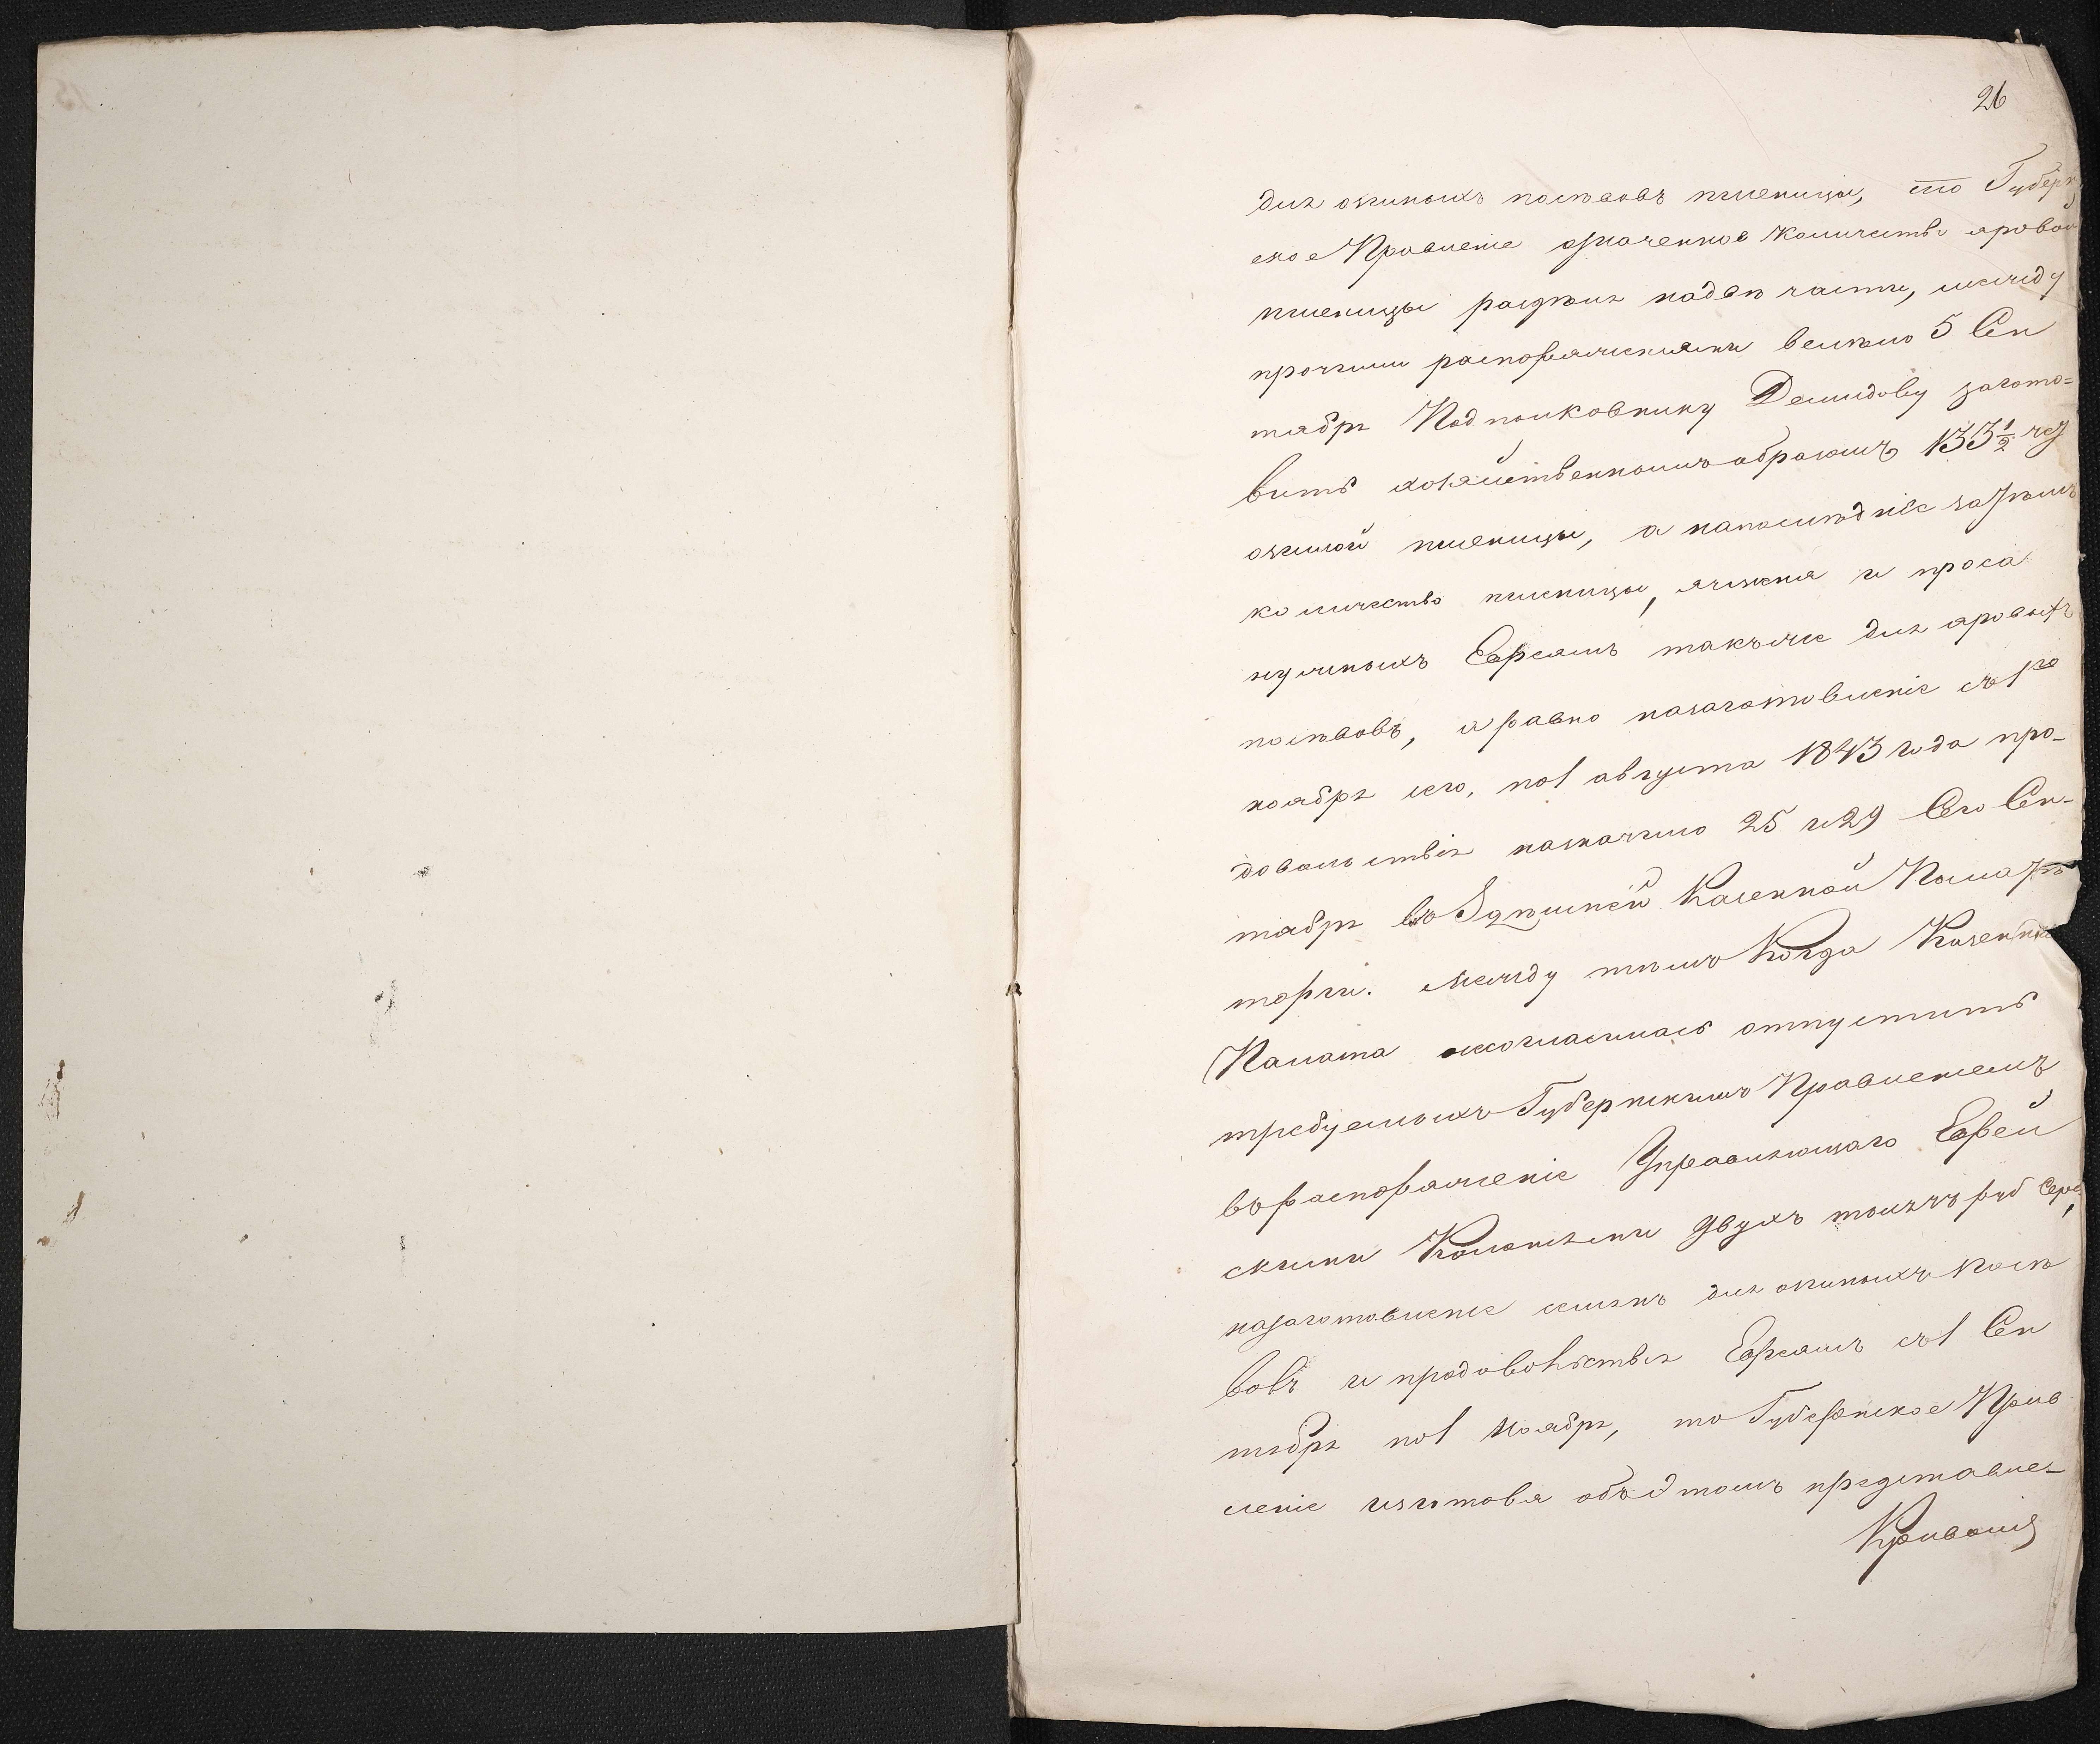 26
для озимыхъ посѣвовъ пшеницы, то Губерн
ское Правленіе означенное количество яровой
пшеницы раздѣля надвѣ части, между
прочими распоряженіями велѣло 5 Сен
тября Подполковнику Демидову загото=
вить хозяйственнымъ образомъ 133½ чет
озимой пшеницы, а напослѣдніе затѣмъ
количество пшеницы, ячменя и проса
нужныхъ Евреямъ такъже для яровыхъ
посѣвовъ, и равно назаготовленіе съ 1го
ноября сего, по 1 августа 1843 года про-
довольствія назначило 25 и 29 Сего Сен-
тября въ Здѣшней Казенной Палатѣ
торги. Между тѣмъ когда Казенная
Палата несогласилась отпустить
требуемыхъ Губернскимъ Правленіемъ
въ распоряженіе Управляющаго Еврей
скими Колоніями двухъ тысячъ руб сер,
назаготовленіе сѣмянъ для озимыхъ посѣ
вовъ и продовольствія Евреямъ съ 1 Сен
тября по 1 Ноября, то Губернское Прав
леніе изготовя объ этомъ представле-